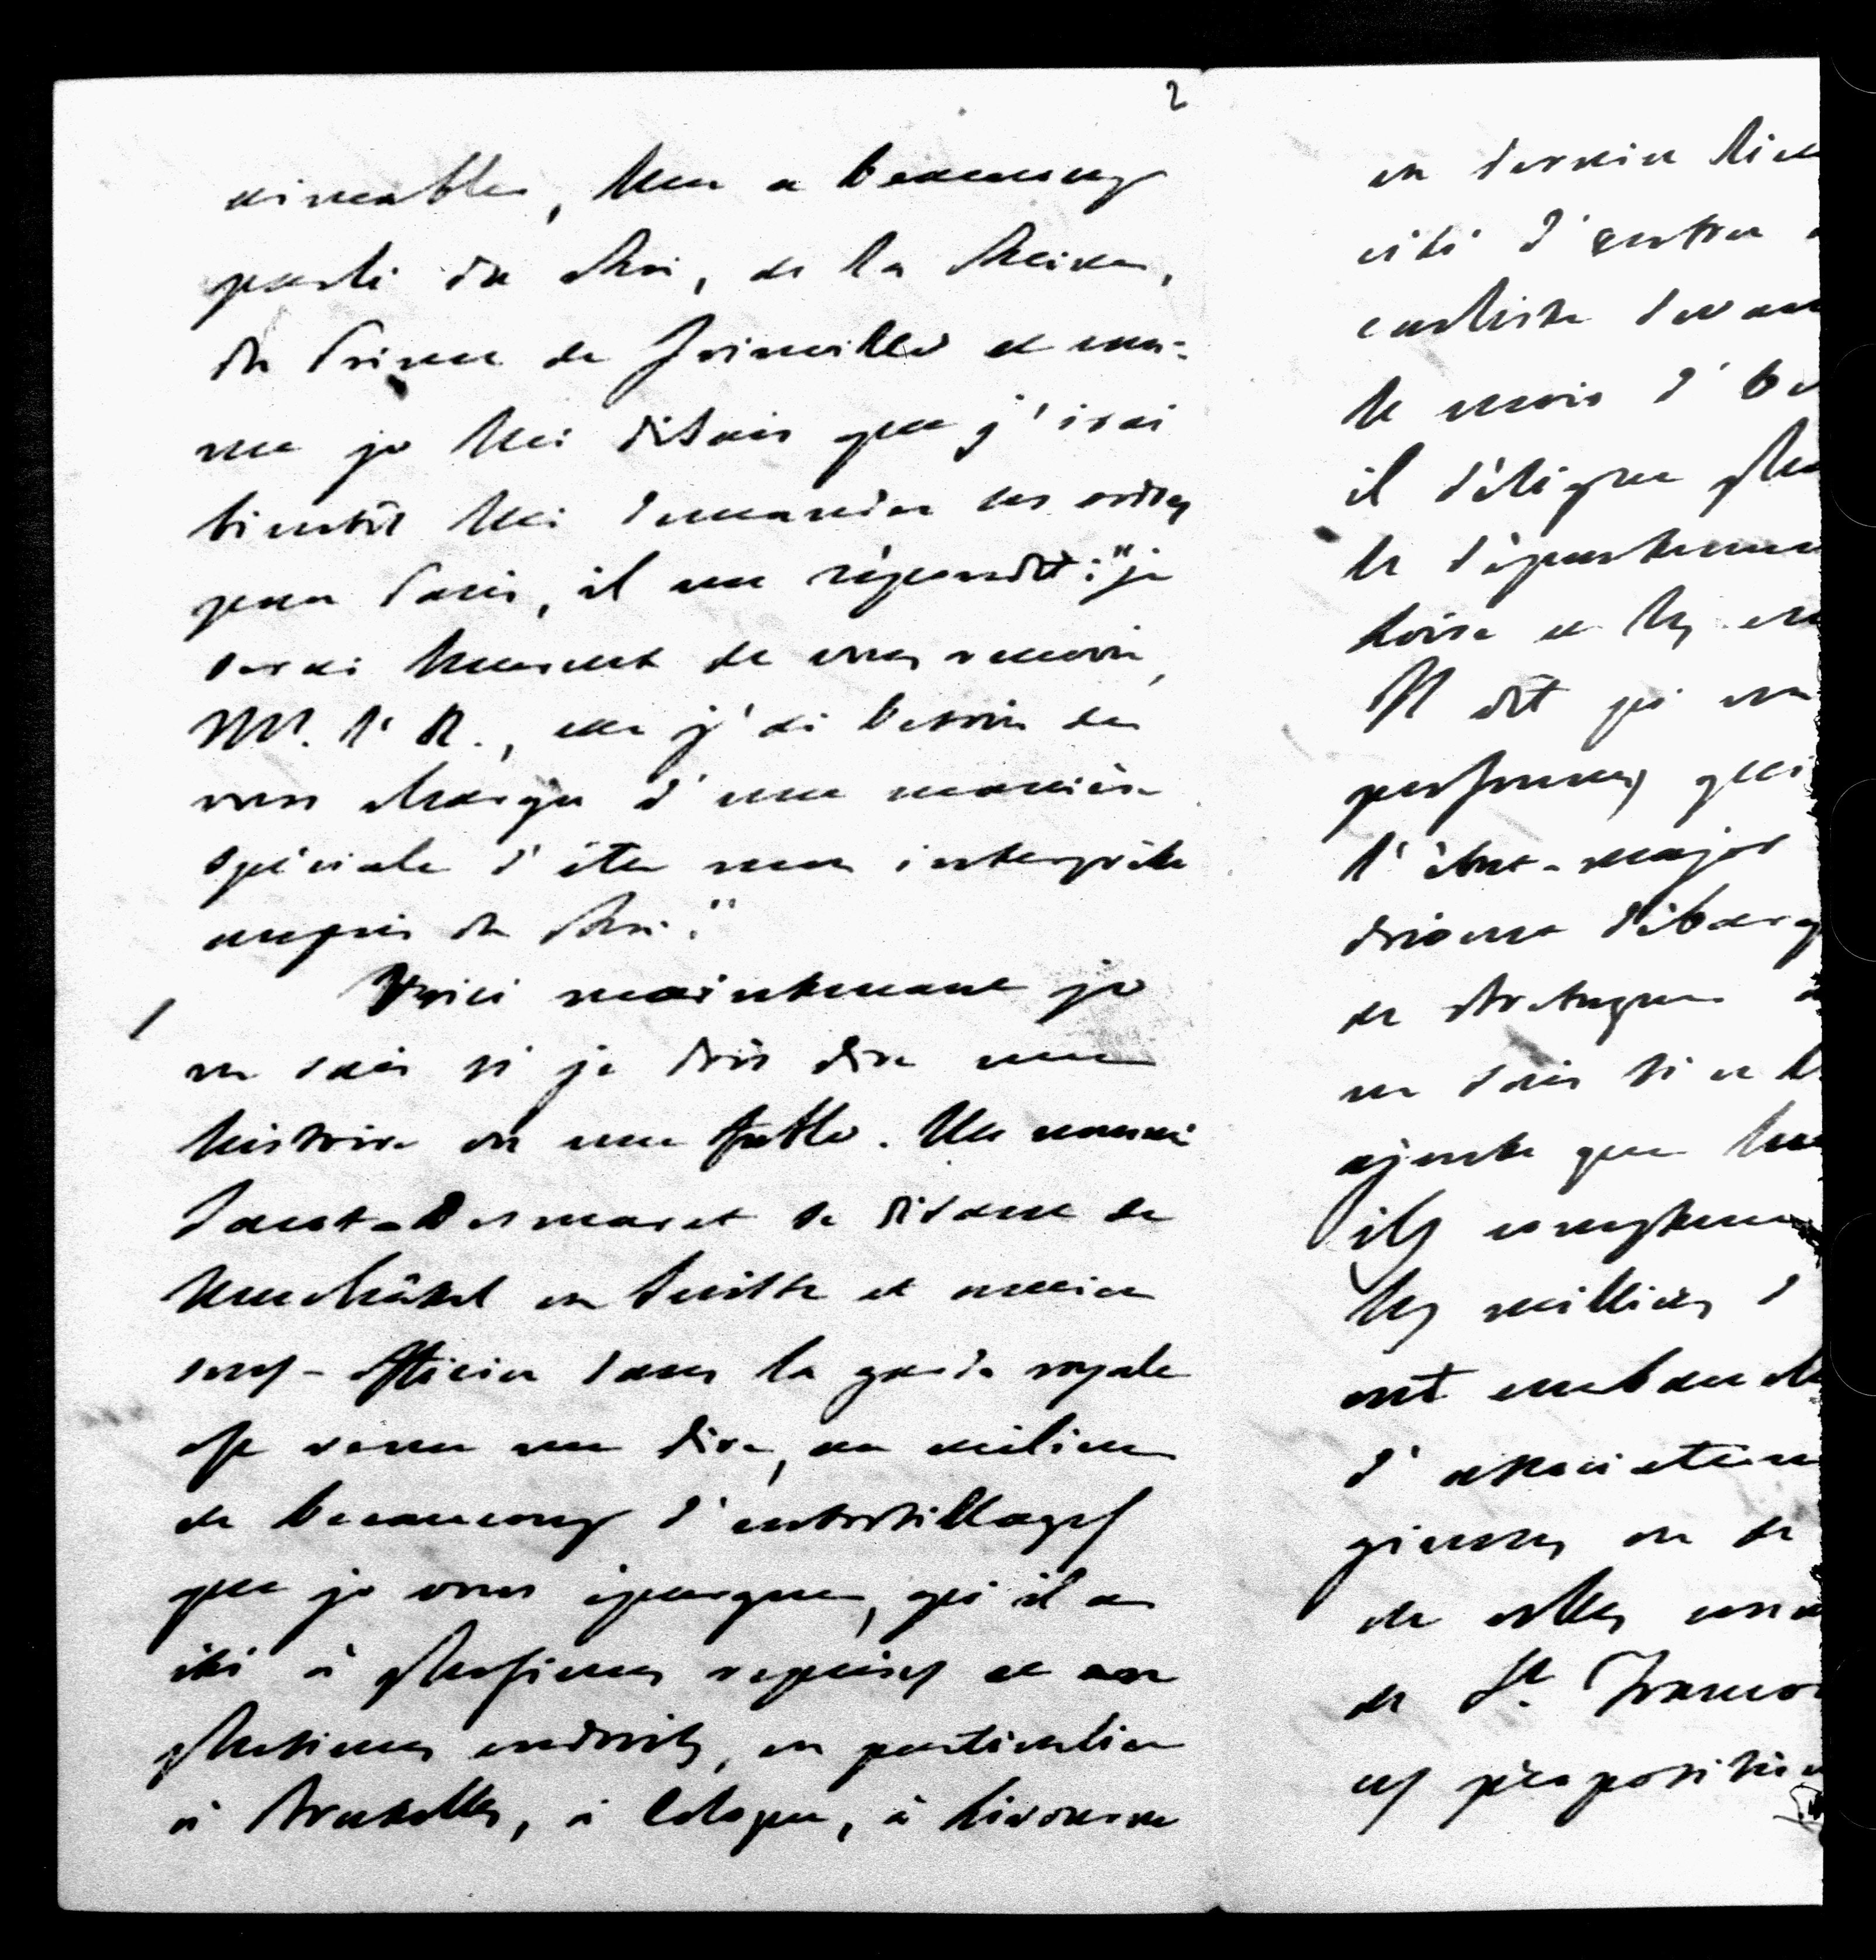 2
aimable, m'a beaucoup
parlé du Roi, de la Reine,
du Prince de Joinville et com-
me je lui disais que j'irai
bientôt lui demander ses ordres
pour Paris, il me répondit : "je
serai heureux de vous revoir,
M. l' A., car j'ai besoin de
vous charger d'une manière
spéciale d'être mon interprète
auprès du Roi."
Voici maintenant je
ne sais si je dois dire une
histoire ou une fable. Un nommé
se disant de
Neuchâtel en Suisse et ancien
sous-officier dans la garde royale
est venu me dire, au milieu
de beaucoup d'entortillages
que je vous épargne, qu'il a
été à plusieurs reprises et en
plusieurs endroits, en particulier
à Bruxelles, à Cologne, à Livourne
en dernier lieu
été d'entrer
carliste devant
le mois d'
il désigne
le département
Loire et les
Il dit qu'
personnes, qui
l'état-major
de Bretagne
ne sais si
ajoute que
ils comptent
les milliers d
ont
d'association
de
de celles
de St. François
ces propositions